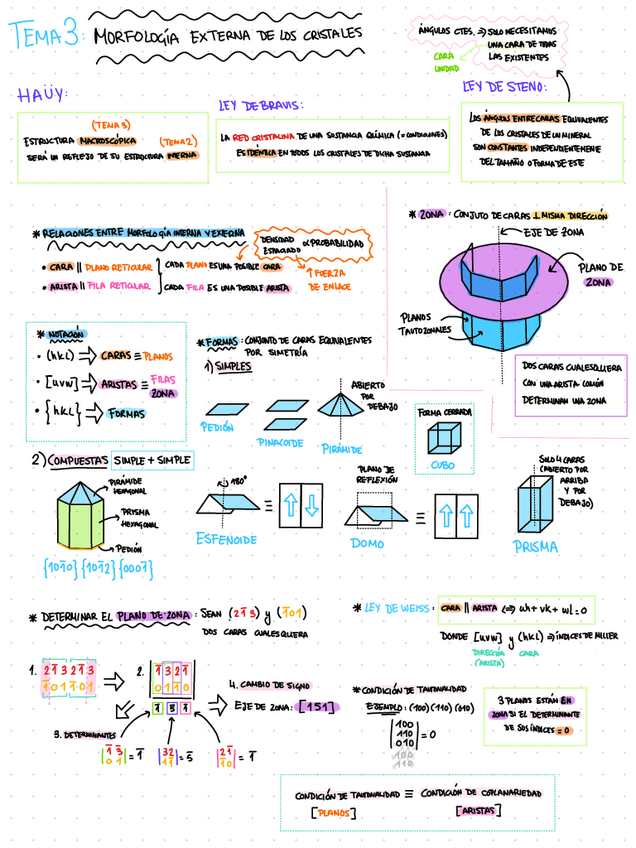 TEMA 3: MORFOLOGÍA EXTERNA DE LOS CRISTALES
ÁNGULOS CTES. ⇒ SOLO NECESITAMOS
UNA CARA DE TODAS
LAS EXISTENTES
CARA
UNIDAD
HAÜY:
(TEMA 3)
ESTRUCTURA MACROSCÓPICA (TEMA 2)
SERÁ UN REFLEJO DE SU ESTRUCTURA INTERNA
LEY DE BRAVIS:
LA RED CRISTALINA DE UNA SUSTANCIA QUÍMICA (= CONDICIONES)
ES IDÉNTICA EN TODOS LOS CRISTALES DE DICHA SUSTANCIA
LEY DE STENO:
LOS ÁNGULOS ENTRE CARAS EQUIVALENTES
DE LOS CRISTALES DE UN MINERAL
SON CONSTANTES INDEPENDIENTEMENTE
DEL TAMAÑO O FORMA DE ESTE
* RELACIONES ENTRE MORFOLOGÍA INTERNA Y EXTERNA
DENSIDAD
ESPACIADO
∝ PROBABILIDAD
• CARA || PLANO RETICULAR
• ARISTA || FILA RETICULAR
CADA PLANO ES UNA POSIBLE CARA
CADA FILA ES UNA POSIBLE ARISTA
↑ FUERZA
DE ENLACE
* ZONA: CONJUTO DE CARAS ⊥ MISMA DIRECCIÓN
EJE DE ZONA
PLANO DE
ZONA
PLANOS
TAUTOZONALES
DOS CARAS CUALESQUIERA
CON UNA ARISTA COMÚN
DETERMINAN UNA ZONA
* NOTACIÓN
• (hkl) ⇒ CARAS ≡ PLANOS
• [uvw] ⇒ ARISTAS ≡ FILAS
ZONA
• {hkl} ⇒ FORMAS
* FORMAS: CONJUNTO DE CARAS EQUIVALENTES
POR SIMETRÍA
1) SIMPLES
PEDIÓN
PINACOIDE
PIRÁMIDE
ABIERTO
POR
DEBAJO
FORMA CERRADA
CUBO
2) COMPUESTAS SIMPLE + SIMPLE
PIRÁMIDE
HEXAGONAL
PRISMA
HEXAGONAL
PEDIÓN
{101̄0} {101̄2} {0001̄}
180°
≡
ESFENOIDE
PLANO DE
REFLEXIÓN
≡
DOMO
SOLO 4 CARAS
(ABIERTO POR
ARRIBA
Y POR
DEBAJO)
PRISMA
* DETERMINAR EL PLANO DE ZONA: SEAN (21̄3) y (1̄01)
DOS CARAS CUALESQUIERA
* LEY DE WEISS: CARA || ARISTA ⇔ uh + vk + wl = 0
DONDE [uvw] y (hkl) ⇒ ÍNDICES DE MILLER
DIRECCIÓN CARA
(ARISTA)
1. 21̄3 21̄3
1̄01 1̄01
2. 1̄321̄
011̄0
1̄ 5̄ 1̄
3. DETERMINANTES
|1̄ 3|
|0 1| = 1̄
|3 2|
|1 1̄| = 5̄
|2 1̄|
|1̄ 0| = 1̄
4. CAMBIO DE SIGNO
EJE DE ZONA: [151]
* CONDICIÓN DE TAUTONALIDAD
EJEMPLO: (100) (110) (010)
100
110
010
= 0
100
110
3 PLANOS ESTÁN EN
ZONA SI EL DETERMINANTE
DE SUS ÍNDICES = 0
CONDICIÓN DE TAUTONALIDAD ≡ CONDICIÓN DE COPLANARIEDAD
[PLANOS]
[ARISTAS]